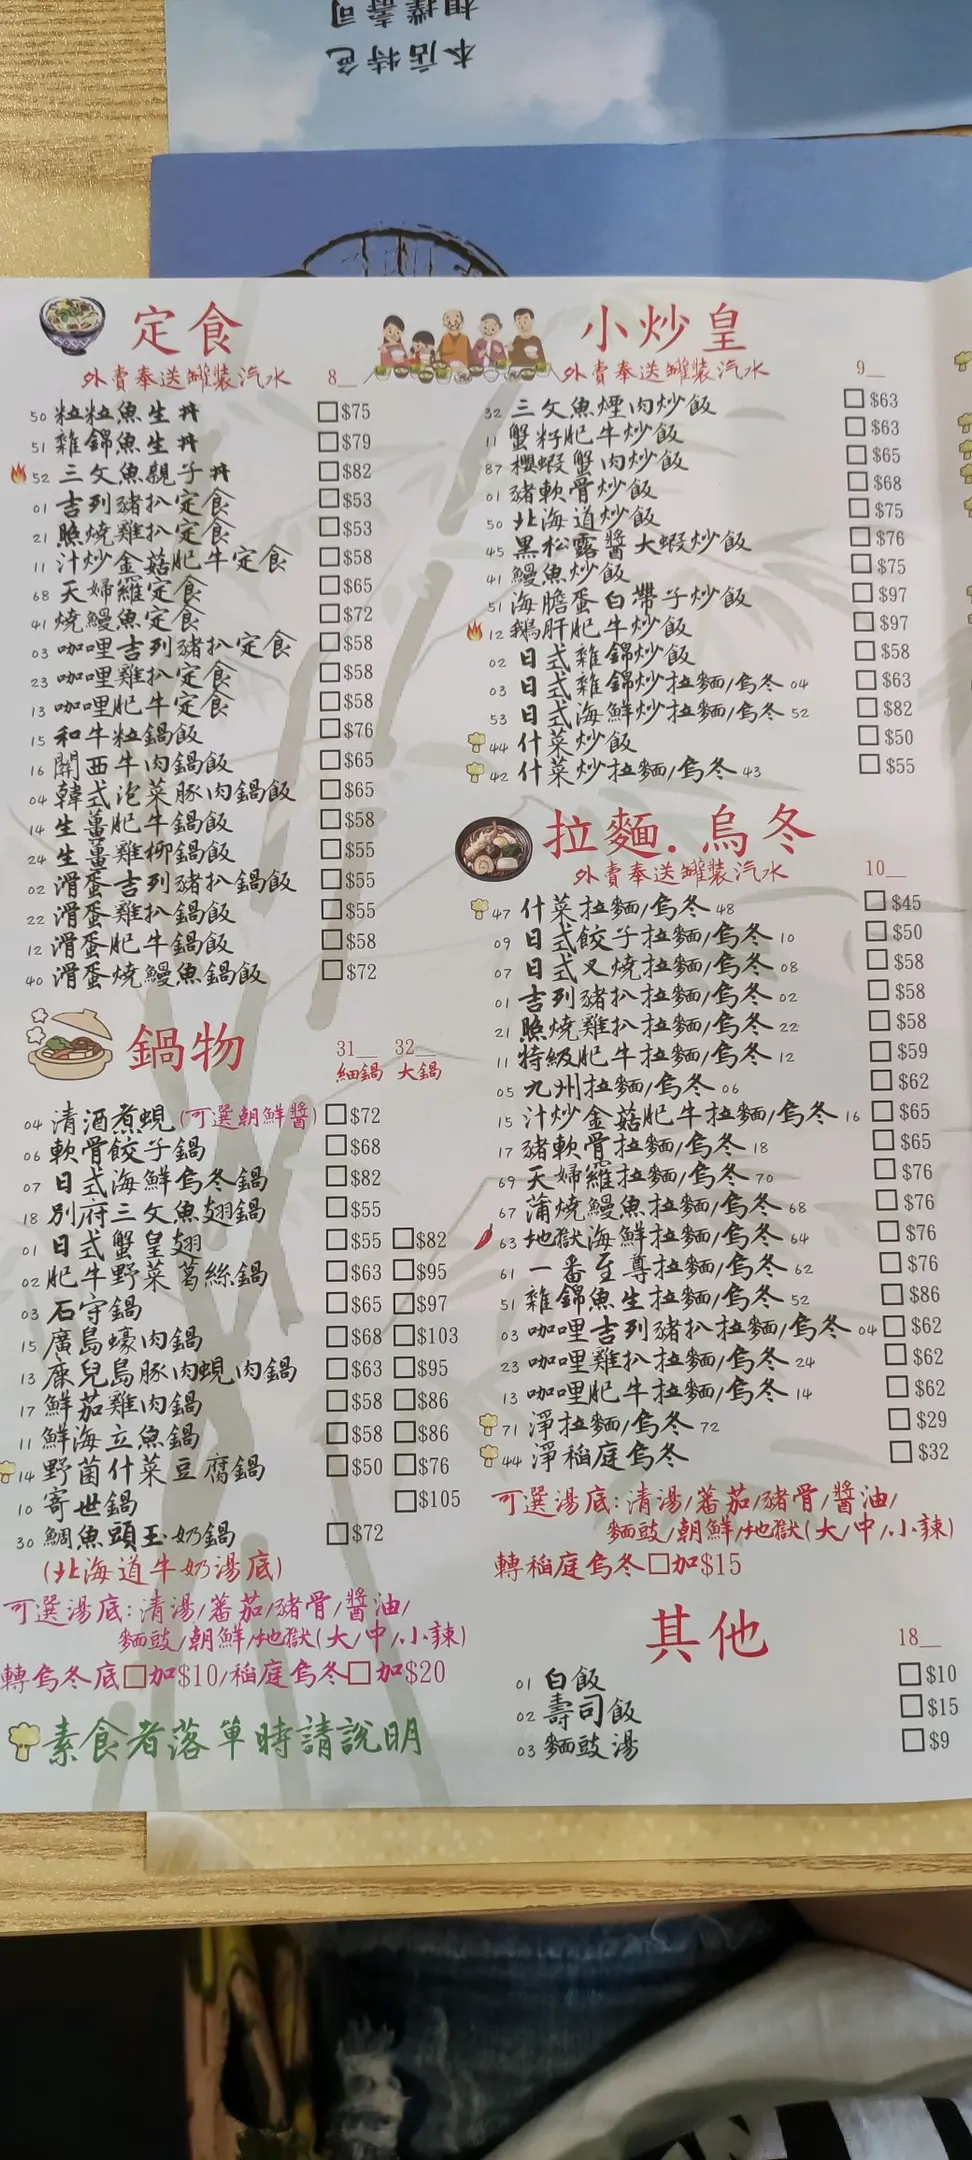 本店特色
相撲壽司
定食
外賣奉送罐裝汽水 8__
50 粒粒魚生丼 □$75
51 雜錦魚生丼 □$79
52 三文魚親子丼 □$82
01 吉列豬扒定食 □$53
21 照燒雞扒定食 □$53
11 汁炒金菇肥牛定食 □$58
68 天婦羅定食 □$65
41 燒鰻魚定食 □$72
03 咖哩吉列豬扒定食 □$58
23 咖哩雞扒定食 □$58
13 咖哩肥牛定食 □$58
15 和牛粒鍋飯 □$76
16 關西牛肉鍋飯 □$65
04 韓式泡菜豚肉鍋飯 □$65
14 生薑肥牛鍋飯 □$58
24 生薑雞柳鍋飯 □$55
02 滑蛋吉列豬扒鍋飯 □$55
22 滑蛋雞扒鍋飯 □$55
12 滑蛋肥牛鍋飯 □$58
40 滑蛋燒鰻魚鍋飯 □$72
鍋物
31__ 32__
細鍋 大鍋
04 清酒煮蜆 (可選朝鮮醬) □$72
06 軟骨餃子鍋 □$68
07 日式海鮮烏冬鍋 □$82
18 別府三文魚翅鍋 □$55
01 日式蟹皇翅 □$55 □$82
02 肥牛野菜葛絲鍋 □$63 □$95
03 石守鍋 □$65 □$97
15 廣島蠔肉鍋 □$68 □$103
13 鹿兒島豚肉蜆肉鍋 □$63 □$95
17 鮮茄雞肉鍋 □$58 □$86
11 鮮海立魚鍋 □$58 □$86
14 野菌什菜豆腐鍋 □$50 □$76
10 寄世鍋 □$105
30 鯛魚頭玉奶鍋 □$72
(北海道牛奶湯底)
可選湯底:清湯/蕃茄/豬骨/醬油/
麵豉/朝鮮/地獄(大/中/小辣)
轉烏冬底□加$10/稻庭烏冬□加$20
素食者落單時請說明
小炒皇
外賣奉送罐裝汽水 9__
32 三文魚煙肉炒飯 □$63
11 蟹籽肥牛炒飯 □$63
87 櫻蝦蟹肉炒飯 □$65
01 豬軟骨炒飯 □$68
50 北海道炒飯 □$75
45 黑松露醬大蝦炒飯 □$76
41 鰻魚炒飯 □$75
51 海膽蛋白帶子炒飯 □$97
12 鵝肝肥牛炒飯 □$97
02 日式雜錦炒飯 □$58
03 日式雜錦炒拉麵/烏冬 04 □$63
53 日式海鮮炒拉麵/烏冬 52 □$82
44 什菜炒飯 □$50
42 什菜炒拉麵/烏冬 43 □$55
拉麵.烏冬
外賣奉送罐裝汽水 10__
47 什菜拉麵/烏冬 48 □$45
09 日式餃子拉麵/烏冬 10 □$50
07 日式叉燒拉麵/烏冬 08 □$58
01 吉列豬扒拉麵/烏冬 02 □$58
21 照燒雞扒拉麵/烏冬 22 □$58
11 特級肥牛拉麵/烏冬 12 □$59
05 九州拉麵/烏冬 06 □$62
15 汁炒金菇肥牛拉麵/烏冬 16 □$65
17 豬軟骨拉麵/烏冬 18 □$65
69 天婦羅拉麵/烏冬 70 □$76
67 蒲燒鰻魚拉麵/烏冬 68 □$76
63 地獄海鮮拉麵/烏冬 64 □$76
61 一番至尊拉麵/烏冬 62 □$76
51 雜錦魚生拉麵/烏冬 52 □$86
03 咖哩吉列豬扒拉麵/烏冬 04 □$62
23 咖哩雞扒拉麵/烏冬 24 □$62
13 咖哩肥牛拉麵/烏冬 14 □$62
71 淨拉麵/烏冬 72 □$29
44 淨稻庭烏冬 □$32
可選湯底:清湯/蕃茄/豬骨/醬油/
麵豉/朝鮮/地獄(大/中/小辣)
轉稻庭烏冬□加$15
其他 18__
01 白飯 □$10
02 壽司飯 □$15
03 麵豉湯 □$9